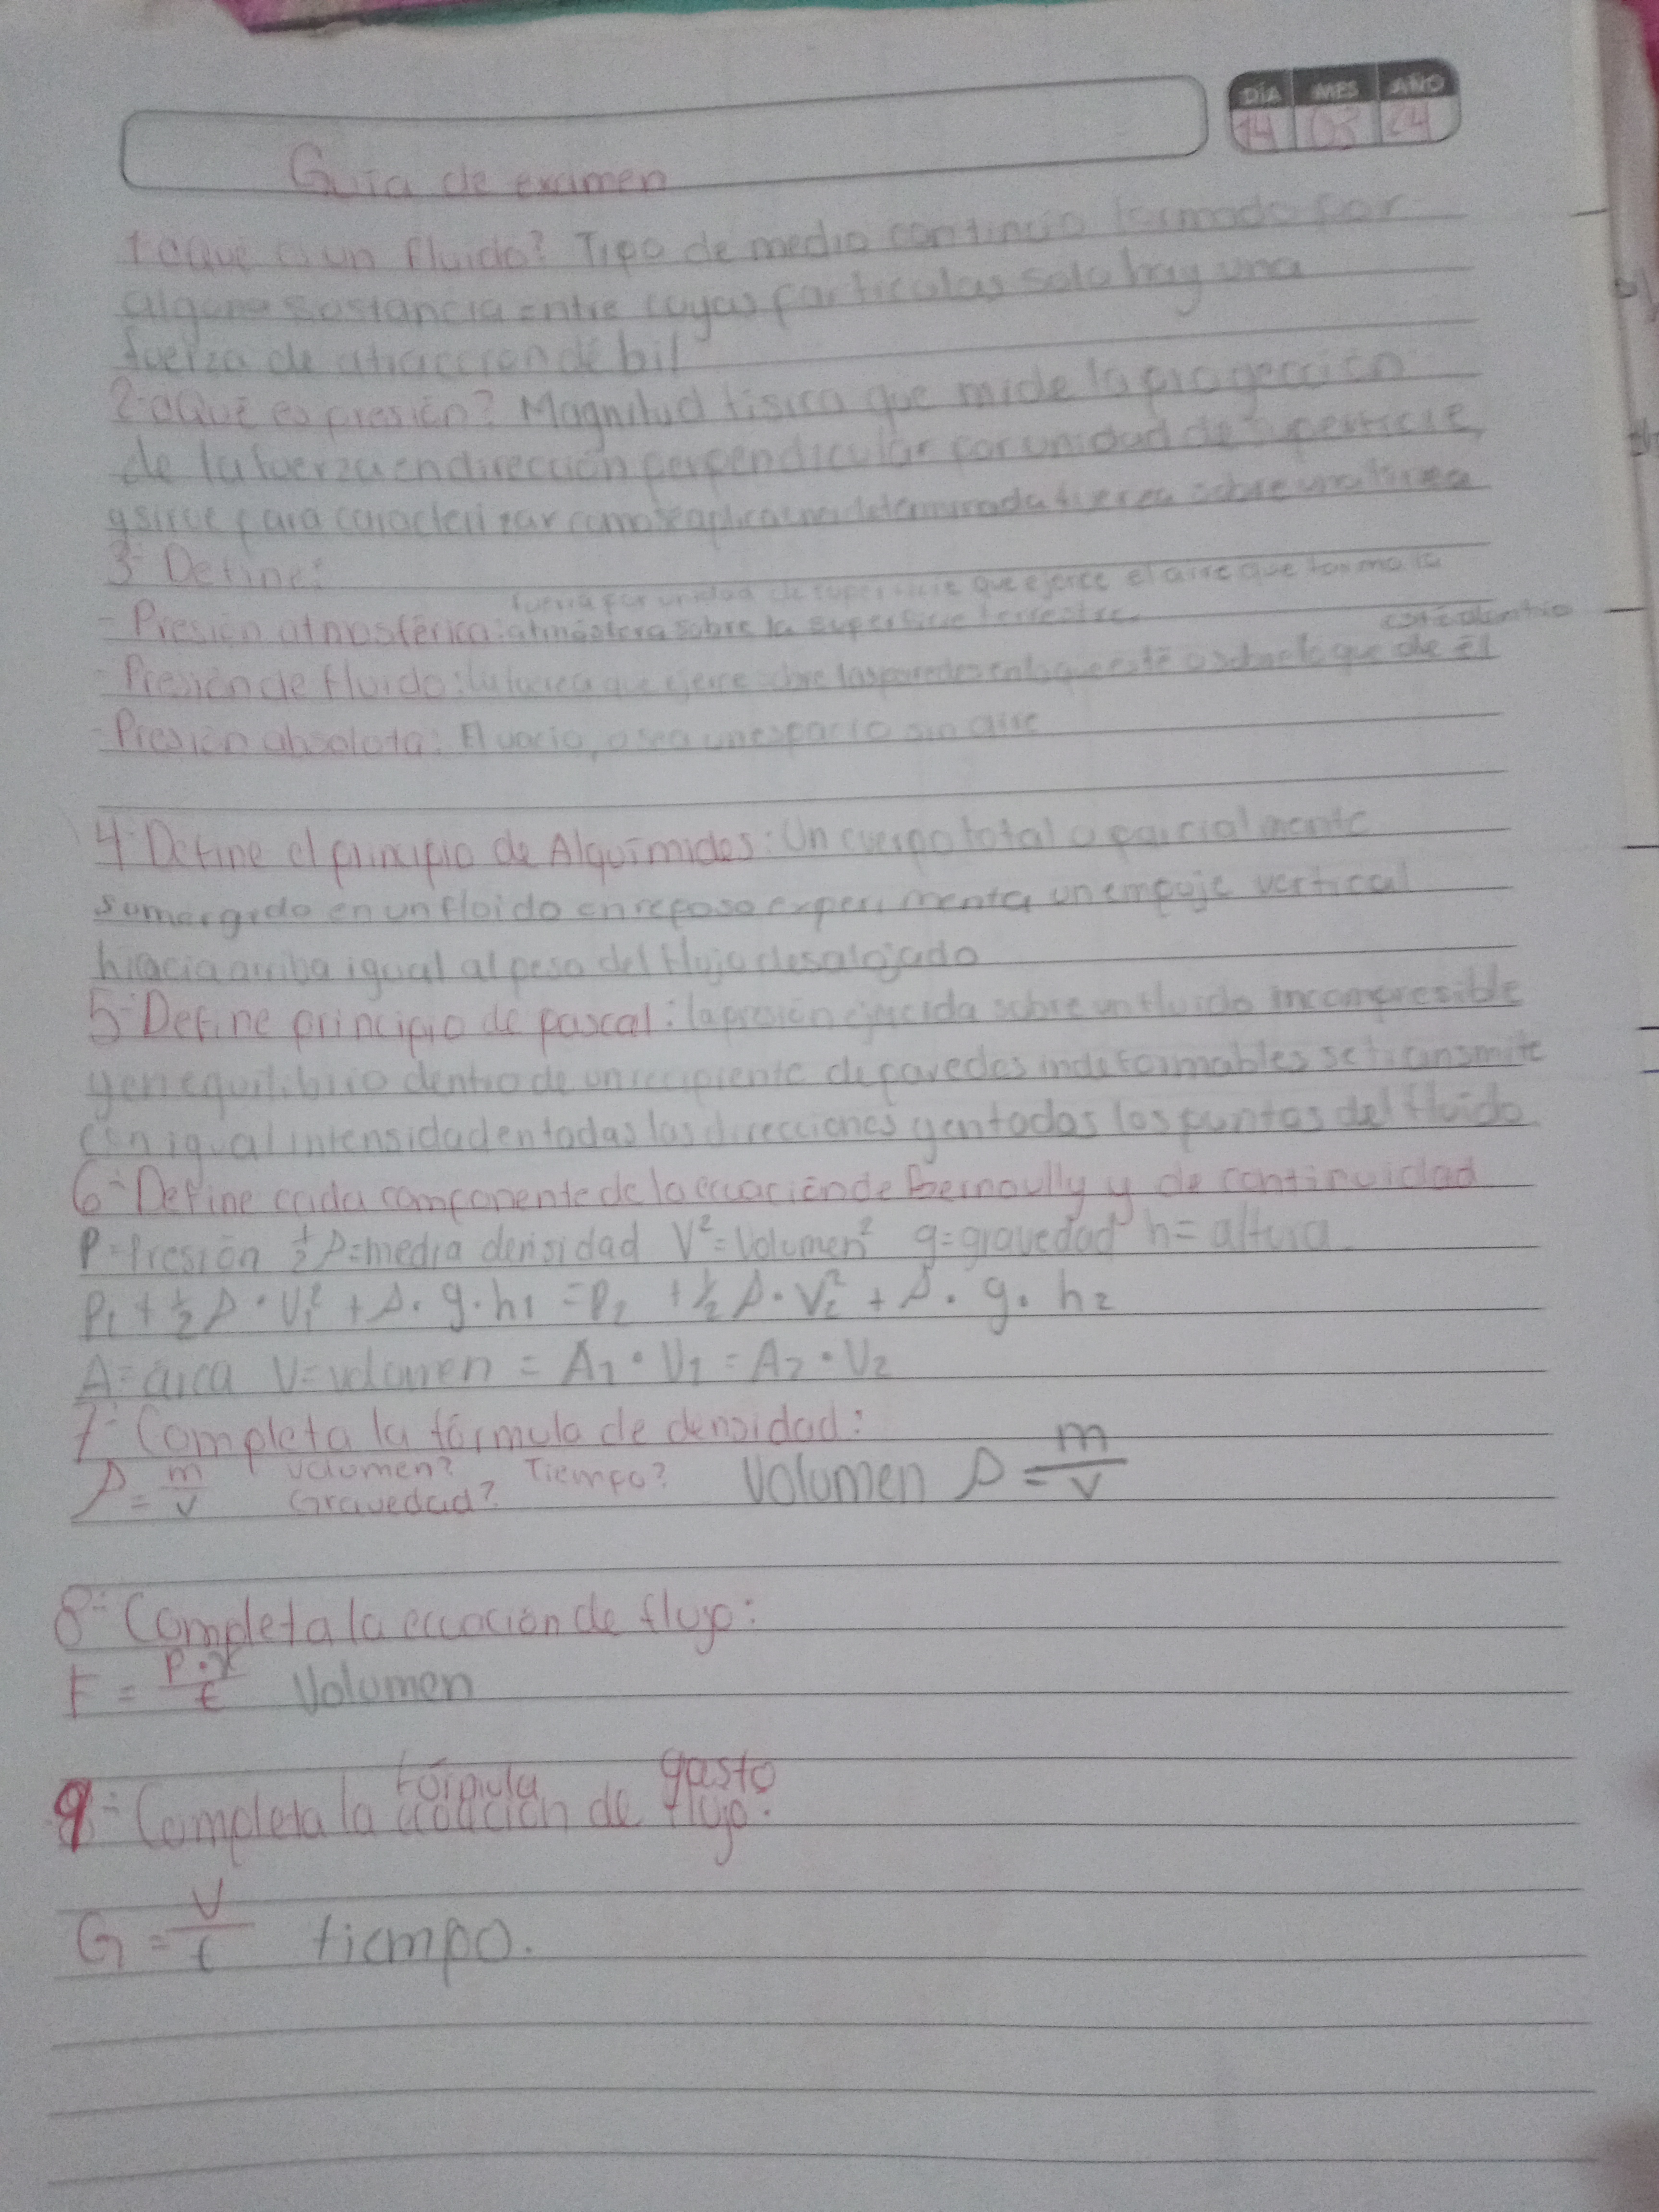 DÍA MES AÑO
14 03 24
Guía de examen
1-¿Qué es un fluido? Tipo de medio continuo formado por
alguna sostancia entre cuyas particulas solo hay una
fuerza de atracción débil
2-¿Qué es presión? Magnitud física que mide la progección
de la fuerza en dirección perpendicular por unidad de superficie,
y sirve para caracterizar como se aplica una determinada fuerza sobre una línea
3- Define:
fuerza por unidad de superficie que ejerce el aire que forma la
- Presión atmosférica: atmósfera sobre la superficie terrestre.
está dentro
- Presión de fluido: la fuerza que ejerce sobre las paredes en la que esté o sobre lo que de él
- Presión absoluta: El vacio, o sea un espacio sin aire
4- Define el principio de Alquímides: Un cuerpo total o parcialmente
sumergido en un floido en reposo experimenta un empuje vertical
hiacia arriba igual al peso del flujo desalojado
5- Define principio de pascal: la presión ejercida sobre un fluido incompresible
y en equilibrio dentro de un recipiente de paredes indeformables se transmite
con igual intensidad en todas las direcciones y en todos los puntos del fluido
6- Define cada componente de la ecuación de Bernoully y de continuidad
P=Presión ½ρ=media densidad V²=Volumen² g=gravedad h=altura
P₁ + ½ρ·V₁² + ρ·g·h₁ = P₂ + ½ρ·V₂² + ρ·g·h₂
A=área V=volumen = A₁·V₁ = A₂·V₂
7- Completa la fórmula de densidad:
ρ = m/v Volumen? Tiempo? Volumen ρ = m/v
Gravedad?
8- Completa la ecuación de flujo:
F = P·V/t Volumen
fórmula gasto
9- Completa la ecuación de flujo:
G = V/t tiempo.